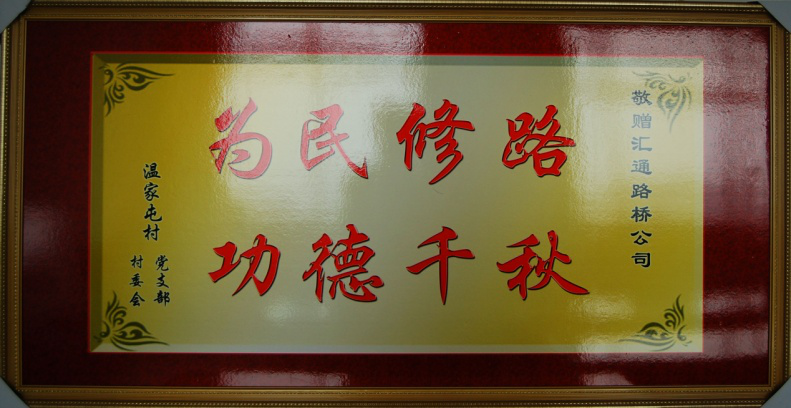 敬赠汇通路桥公司
为民修路
功德千秋
温家屯村
党支部
村委会